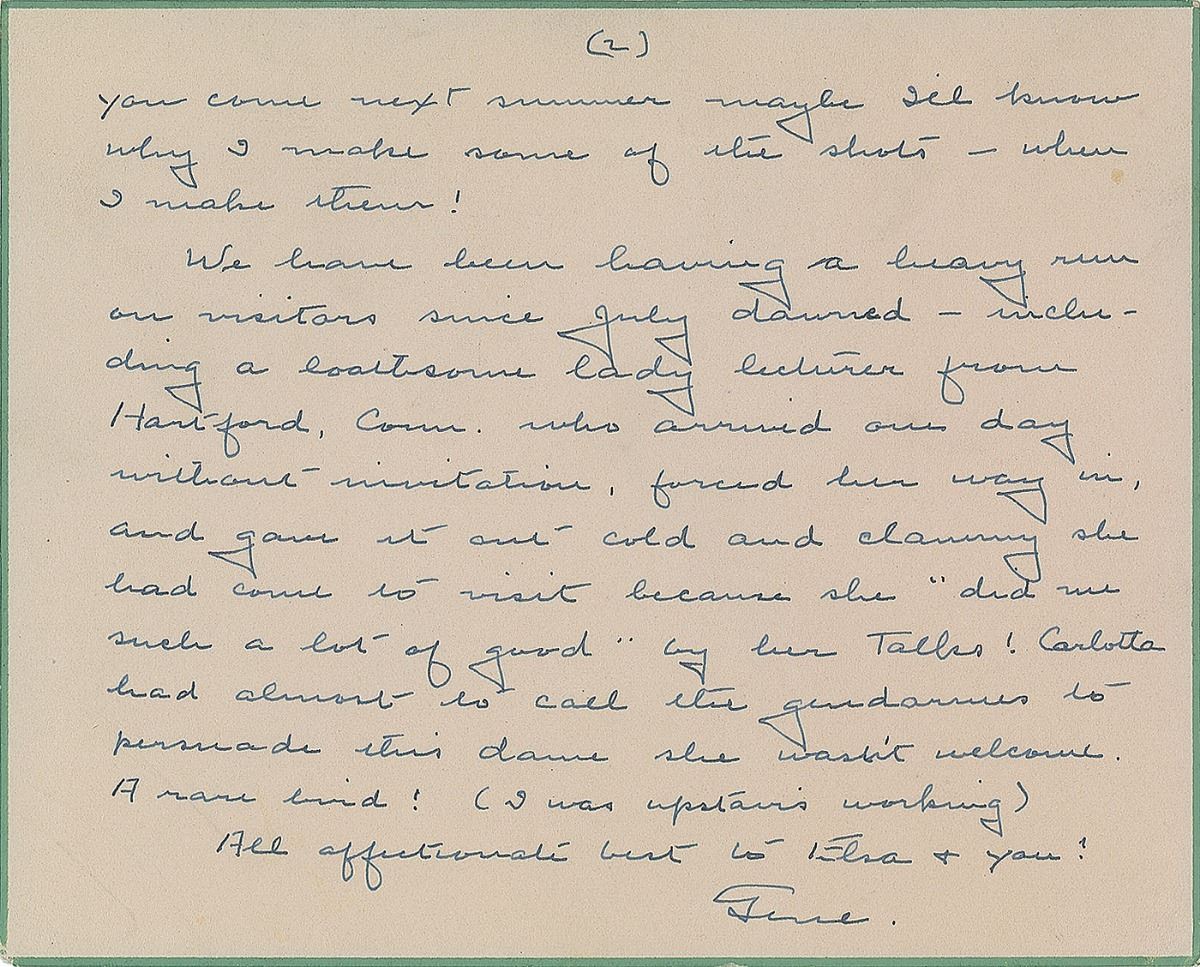 (2)
you come next summer maybe I'll know
why I make some of the shots - when
I make them!
We have been having a heavy run
on visitors since July dawned - inclu-
ding a loathsome lady lecturer from
Hartford, Conn. who arrived one day
without invitation, forced her way in,
and gave it out cold and clammy she
had come to visit because she "did me
such a lot of good" by her Talks! Carlotta
had almost to call the gendarmes to
persuade this dame she wasn't welcome.
A rare bird! (I was upstairs working)
All affectionate best to Elsa + you!
Gene.